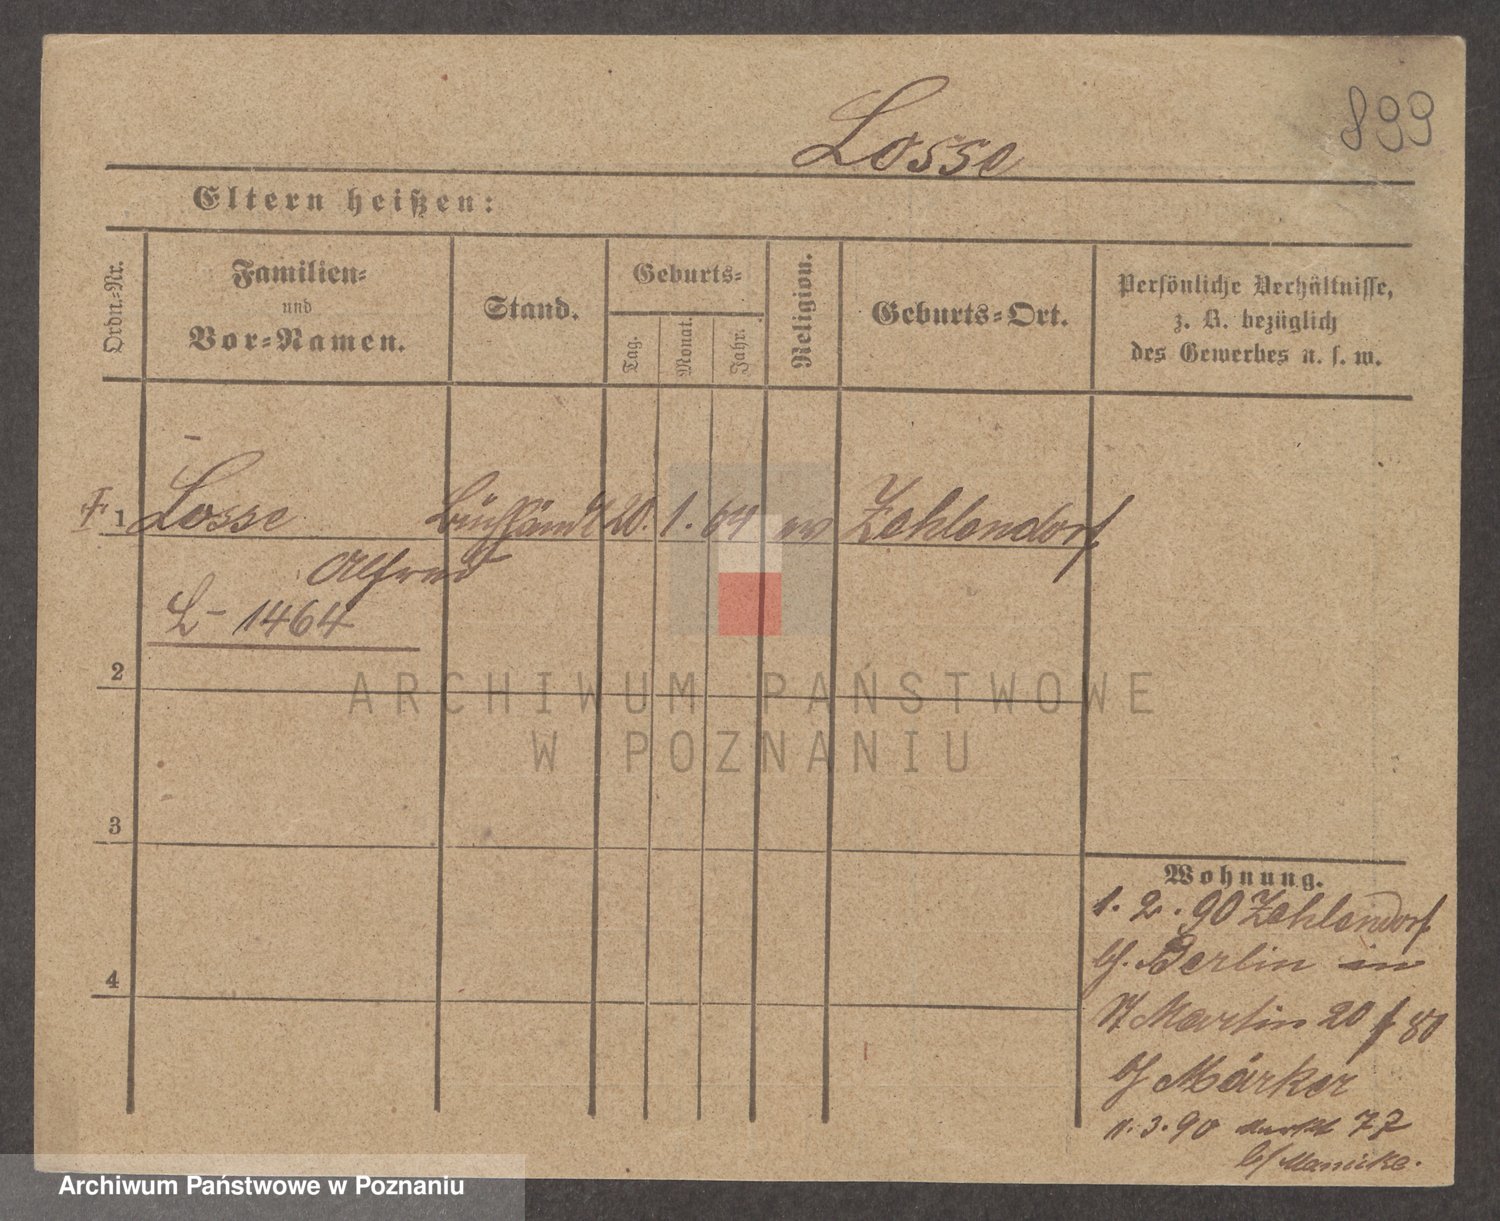 899
Losse
Eltern heißen:
Ordn.-Nr.
Familien-
und
Vor-Namen.
Stand.
Geburts-
Tag.
Monat.
Jahr.
Religion.
Geburts-Ort.
Persönliche Verhältnisse,
z. B. bezüglich
des Gewerbes u. s. w.
1 Losse 20. 1. 64 ev Zehlendorf
Alfred
L- 1464
2
3
4
Wohnung.
1. 2. 90 Zehlendorf
b/. Berlin in
Martin 20
b/ Märker
11. 3. 90 Markt 77
b/
ARCHIWUM PAŃSTWOWE
W POZNANIU
Archiwum Państwowe w Poznaniu